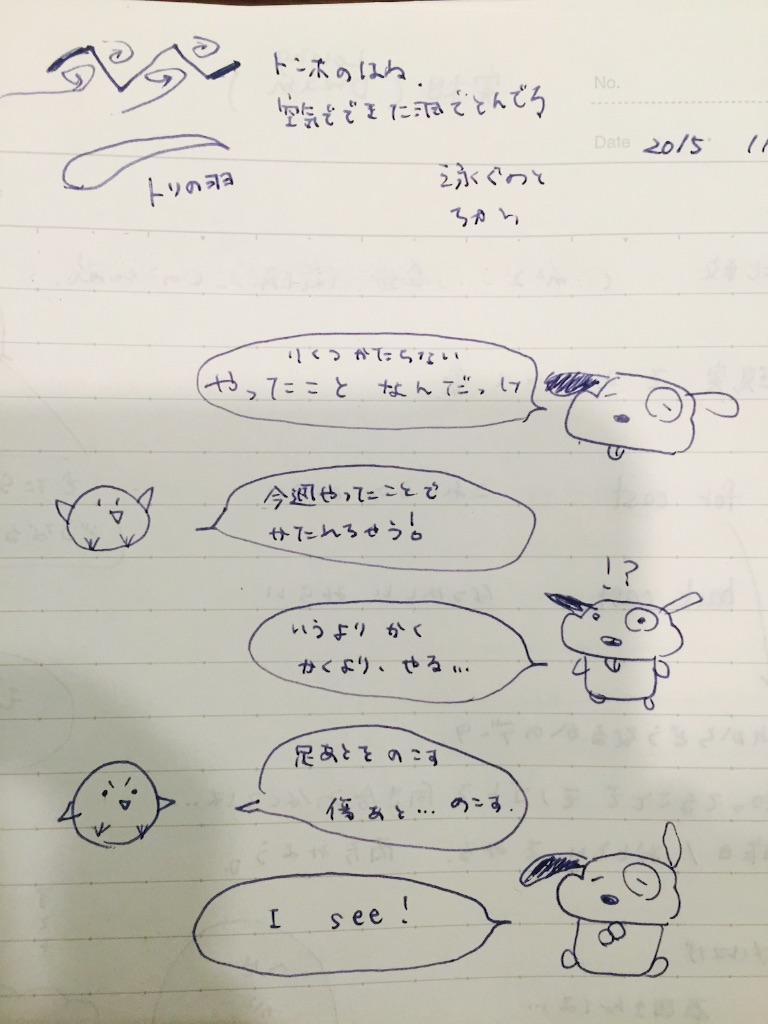 トンボのはね
空気でできた羽でとんでる
No.
Date 2015 11
トリの羽
泳ぐのと
りくつかたらない
やってこと なんでっけ
今週やってことで
かたれるせう!
!?
いうより かく
かくより、やる…
足あとをのこす
傷あと…のこす.
I see!